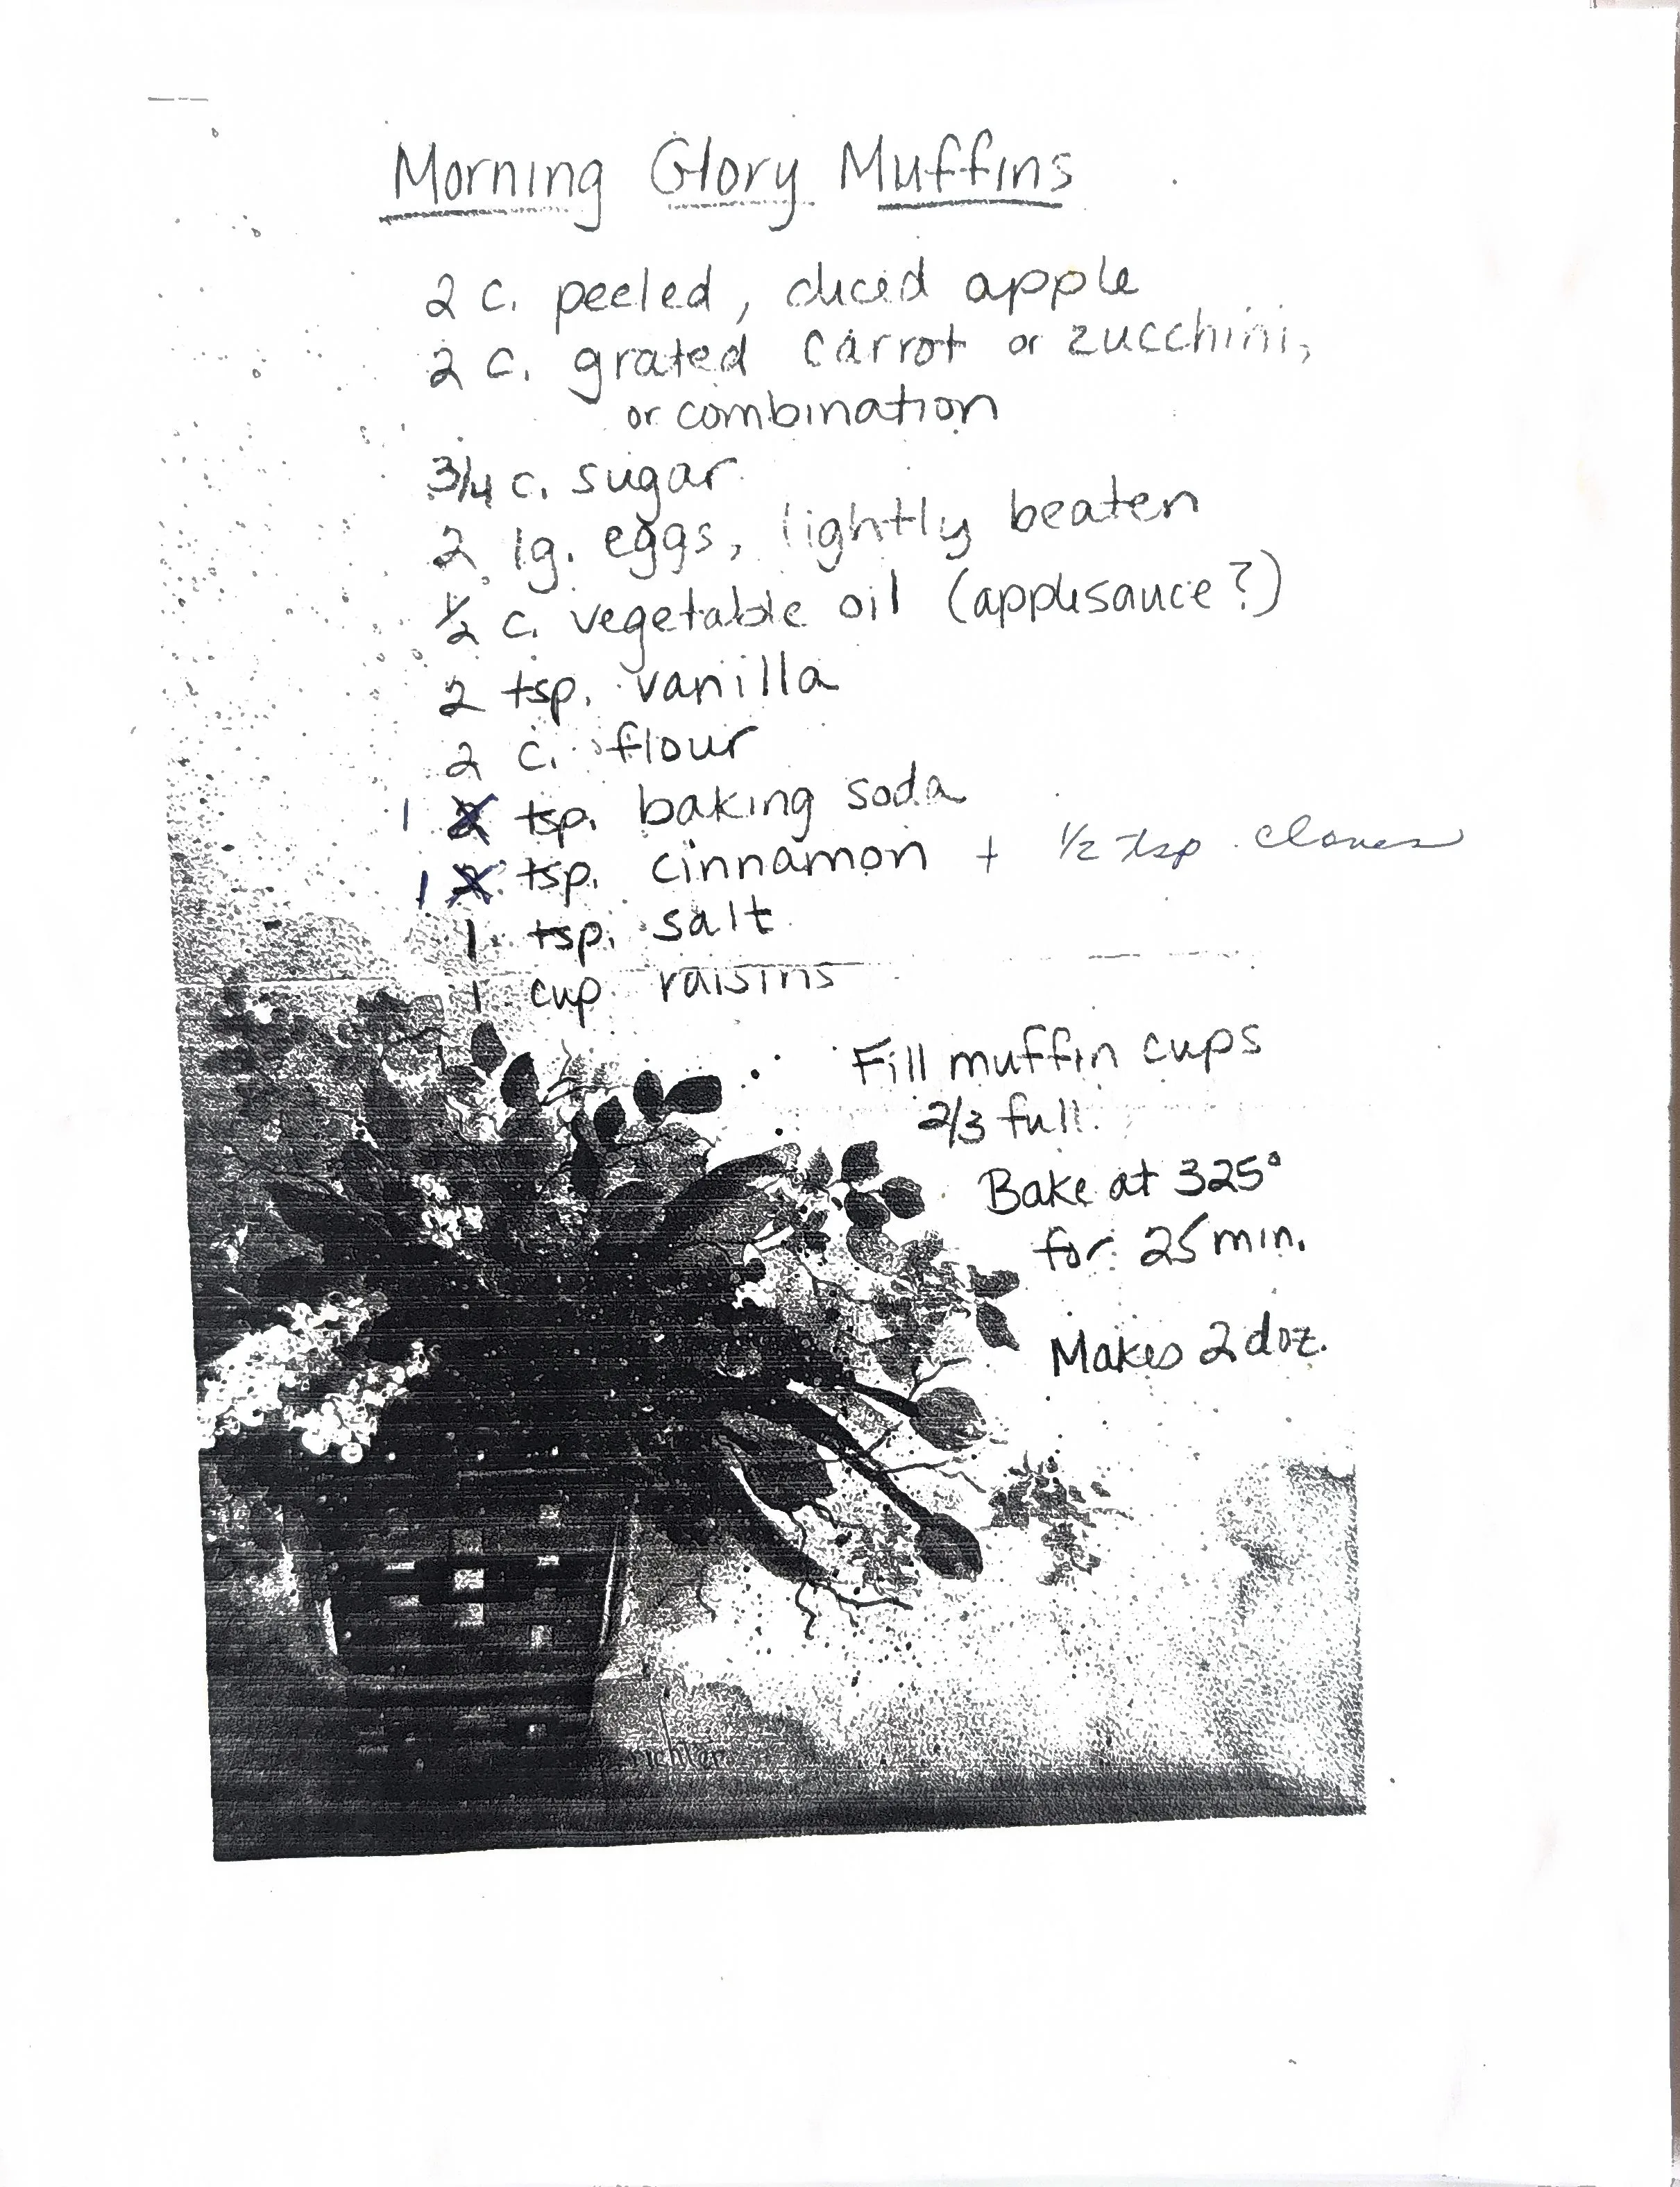 Morning Glory Muffins
2 c. peeled, diced apple
2 c. grated carrot or zucchini,
or combination
3/4 c. sugar
2 lg. eggs, lightly beaten
1/2 c. vegetable oil (applesauce?)
2 tsp. vanilla
2 c. flour
1 2 tsp. baking soda
1 2 tsp. cinnamon + 1/2 tsp. cloves
1 tsp. salt
1 cup raisins
Fill muffin cups
2/3 full.
Bake at 325°
for 25 min.
Makes 2 doz.
richter